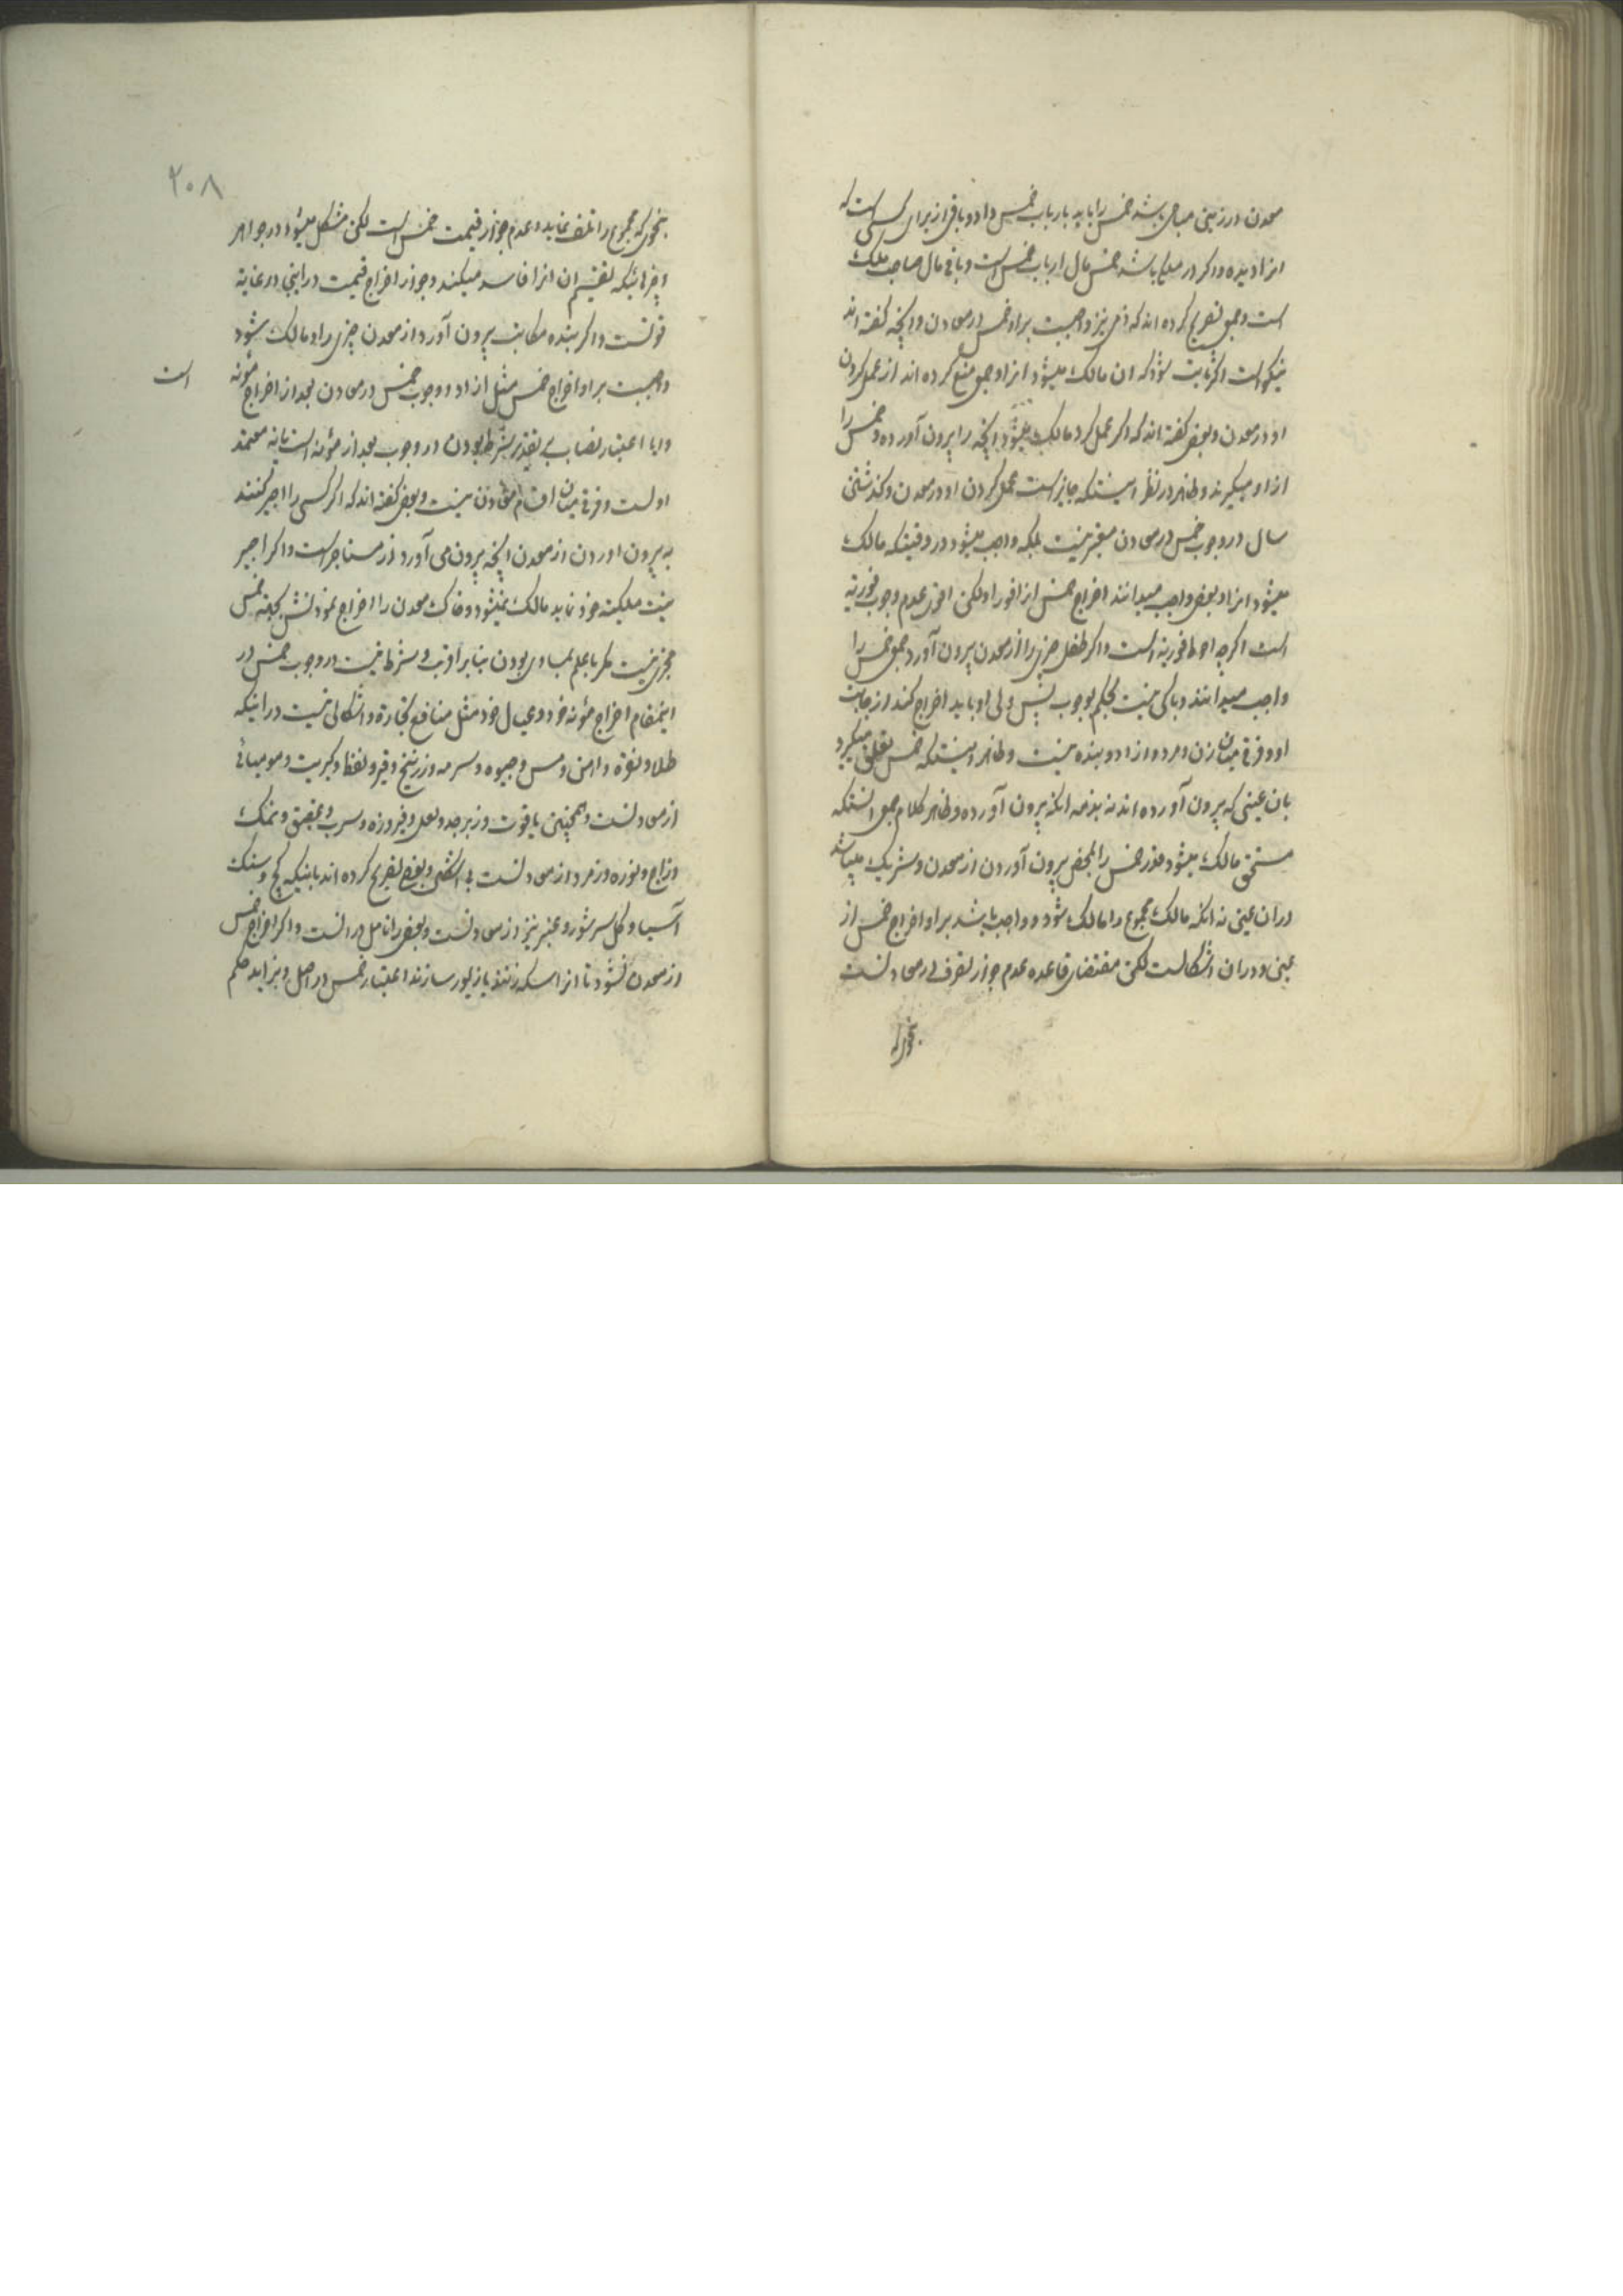 معدن در زمینی مباحی باشد خمس را باید بارباب خمس داد و باقی از برای کسی است که
انرا دیده و اکر در ملکی باشد خمس مال ارباب خمس است و باقی مال صاحب ملک
است و جمعی تصریح کرده اند که ذمی نیز واجبست بر او خمس در معادن و انچه کفته اند
نیکو است اکر ثابت شود که ان مالک میشود انرا و جمعی منع کرده اند از عمل کردن
او در معدن و بعضی کفته اند که اکر عمل کرد مالک میشود انچه را بیرون آورده و خمس را
از او میکیرند و ظاهر در نظر اینستکه جایز است عمل کردن او در معدن و کذشتن
سال در وجوب خمس در معادن معتبر نیست بلکه واجب میشود در وقتیکه مالک
میشود انرا و بعضی واجب میدانند اخراج خمس انرا فورا و لکن اقوی عدم وجوب فوریه
است اکرچه احوط فوریه است و اکر طفل چیزی را از معدن بیرون آورد جمعی خمس را
واجب میدانند و باکی نیست بحکم بوجوب پس ولی او باید اخراج کند از جانب
او و فرقی میان زن و مرد و ازاد و بنده نیست و ظاهر اینستکه خمس تعلق میکیرد
بان عینی که بیرون آورده اند نه بذمه انکه بیرون آورده و ظاهر کلام جمعی انستکه
مستحق مالک میشود قدر خمس را بمحض بیرون آوردن از معدن و شریک میباشد
در ان عین نه انکه مالک مجموع را مالک شود و واجب باشد بر او اخراج خمس از
عین و در ان اشکالست لکن مقتضای قاعده عدم جواز تصرف در معادنست
بنحوی که
۲۰۸
بنحوی که مجموع را تلف نماید و عدم جواز قیمت خمس است لکن مشکل میشود در جواهر
و چیزهائیکه تقسیم ان انرا فاسد میکند و جواز اخراج قیمت در اینجا در غایة
قوتست و اکر بنده مکاتب بیرون آورد از معدن چیزی را و مالک شود
واجبست بر او اخراج خمس مثل ازاد و وجوب خمس در معادن بعد از اخراج مؤنه
است
و ایا اعتبار نصاب بر تقدیر شرط بودن در وجوب بعد از مؤنه است یا نه معتمد
اولست و فرقی میان اقسام معادن نیست و بعضی کفته اند که اکر کسی را اجیر کنند
به بیرون اوردن از معدن انچه بیرون می آورد از مستاجر است و اکر اجیر
نیت ملکیت خود نماید مالک نمیشود و خاک معدن را اخراج نمودنش بجهة خمس
مجزی نیست مکر با علم بمساوی بودن بنابر اقرب و شرط نیست در وجوب خمس در
اینمقام اخراج مؤنه خود و عیال خود مثل منافع تجارة و اشکالی نیست در اینکه
طلا و نقره و اهن و مس و جیوه و سرمه و زرنیخ و قیر و نفط و کبریت و مومیائی
از معادنست و همچنین یاقوت و زبرجد و لعل و فیروزه و سرب و عقیق و نمک
و زاج و نوره و زمرد از معادنست بی اشکال و بعضی تصریح کرده اند باینکه کچ و سنک
آسیا و کل سرشور و عنبر نیز از معادنست و بعضی را تامل در انست و اکر اخراج خمس
از معدن نشود تا انرا سکه زنند یا زیور سازند اعتبار خمس در اصل و بزاید حکم